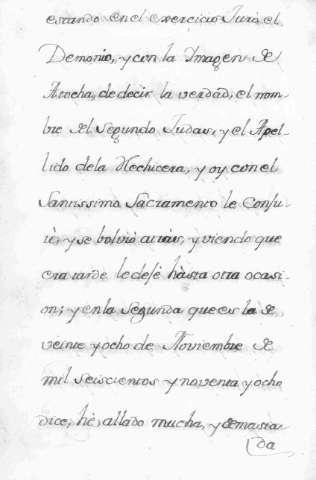 estando en el exercicio Juró el
Demonio, y con la Ymagen de
Atocha, de decir la verdad, el nom-
bre del Segundo Judas, y el Apel-
lido dela Hechicera, y oy con el
Santissimo Sacramento le Conju-
rè, y se bolviò a reir, y viendo que
era tarde le dejé hasta otra ocasi-
on; y en la Segunda que es la de
veinte y ocho de Noviembre de
mil seiscientos y noventa y ocho
dice, hè, allado mucha, y demasia-
da